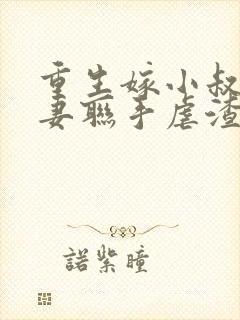 重生嫁小叔
妻聯手虐渣
諾紫瞳